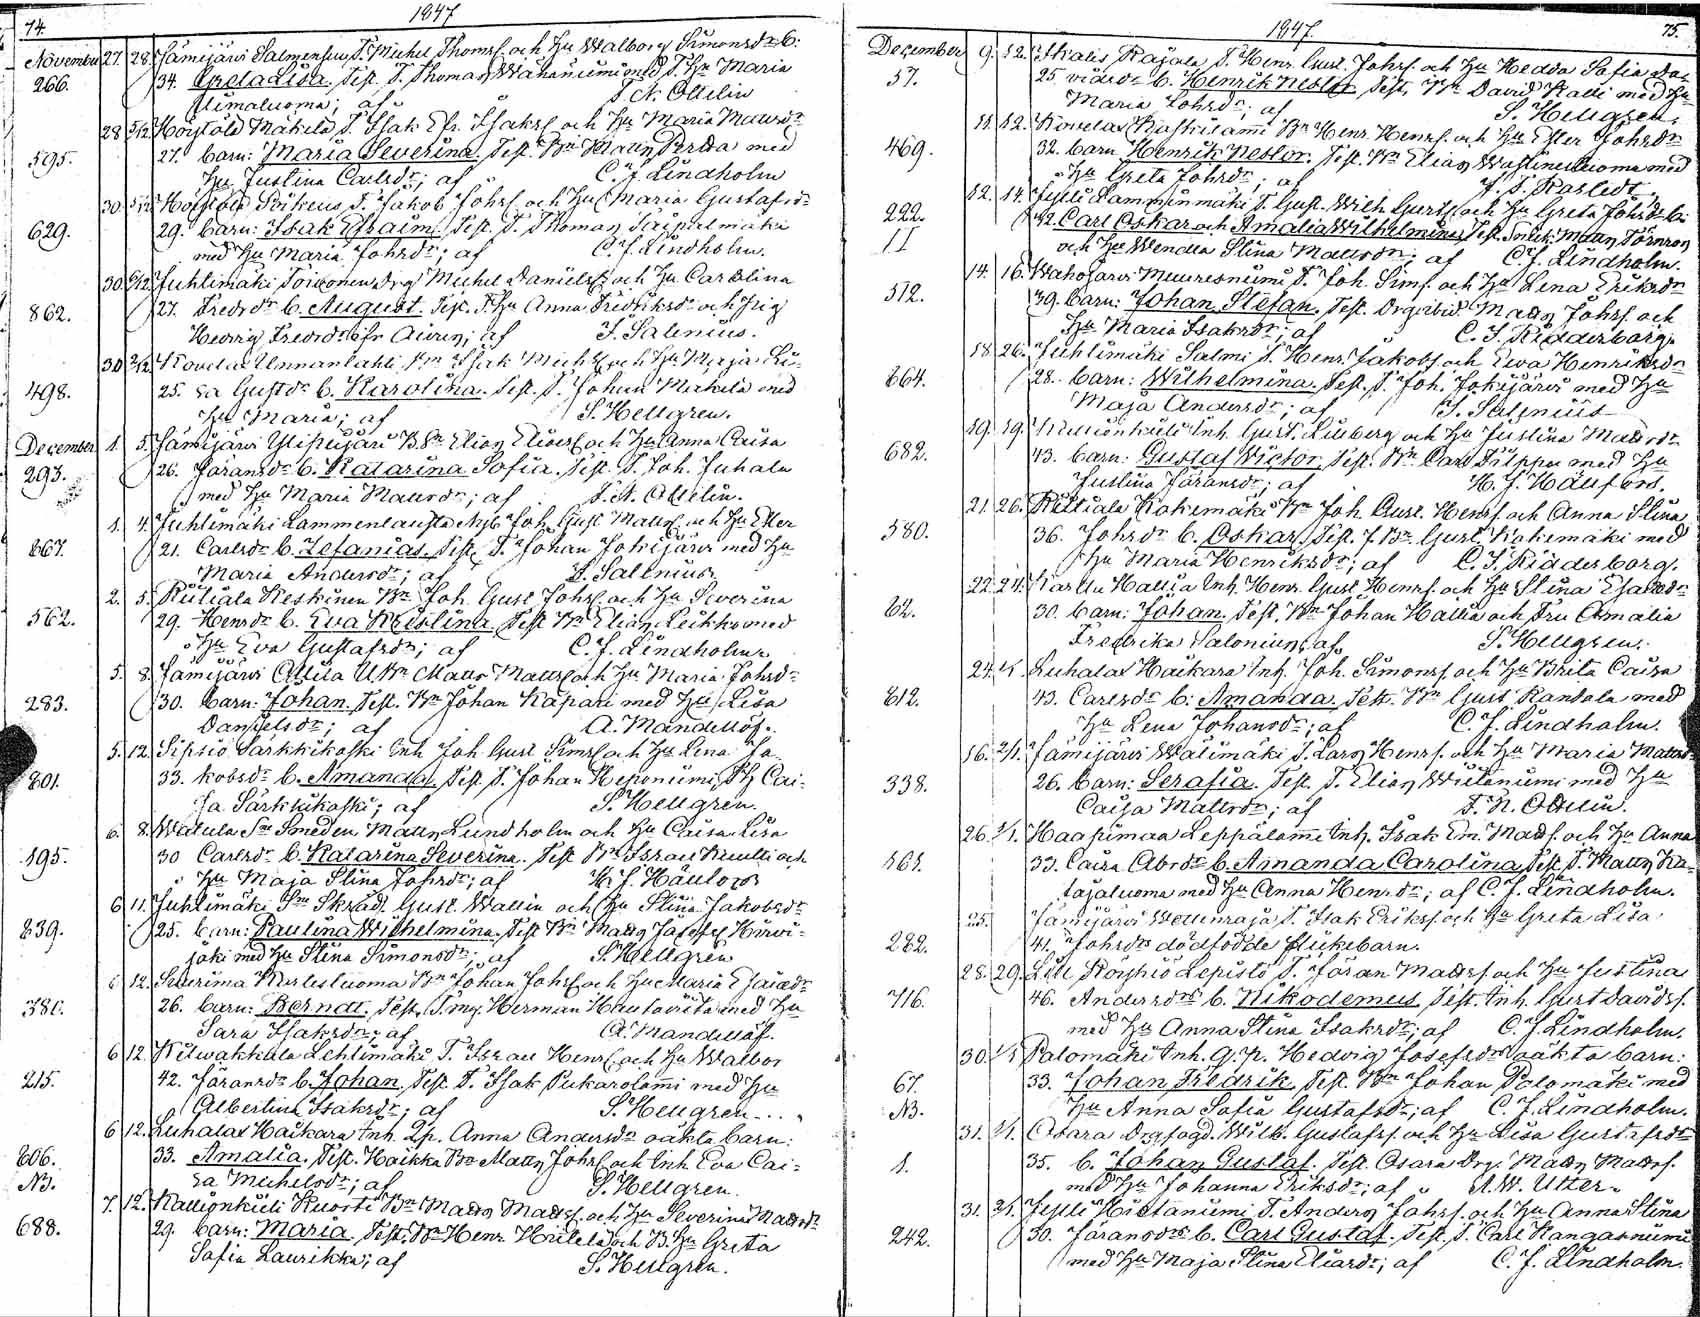 74. 1847
November 27. 28. Jämijärvi Salmensuu, T. Michel Thomss. och Hu Walborg Simonsdr b:
266. 34. Greta Lisa. Test. T. Thomas Wähäniemi med T. Hu Maria
Uimaluoma; af T. N. Ollelin
28 5/12 Höytölä Mäkelä T. Isak Efr. Isakss. och Hu Maria Mattsdr
595. 27. barn: Maria Severina. Test. Bn Matts Perttu med
Hu Justina Carlsdr; af C. J. Lindholm
30 5/12 Höytölä T. Jakob Johss. och Hu Maria Gustafsdr
629. 29. barn: Isak Efraim. Test. T. Thomas Taipalmäki
med Hu Maria Johsdr; af C. J. Lindholm.
30 6/12 Juhtimäki Toivonen Drg Michel Danielss och Hu Carolina
862. 27. Fredrdr b. August. Test. T. Hu Anna Fredriksdr och Pig
Hedvig Fredrdr ifr Auren; af J. Salenius.
30 2/12 Kovelax Unnanlahti Bn Isak Michels och Hu Maja Li-
498. 25. sa Gustdr b. Karolina. Test. T. Johan Mäkelä med
Hu Maria; af S. Hellgren.
December 1. 5. Jämijärvi Ylipiijärvi B. Sn Elias Eliaess. och Hu Anna Caisa
293. 26. Göransdr b. Katarina Sofia. Test. T. Joh. Juhala
med Hu Maria Mattsdr; af T. N. Ollelin.
1. 4. Juhtimäki Lammenlausta Nyb. Joh. Gust. Matts och Hu Ester
867. 21. Carlsdr b. Zefanias. Test. T. Johan Jokijärvi med Hu
Maria Andersdr; af J. Salenius.
2. 5. Riitiala Keskinen Bn Joh. Gust. Johss. och Hu Severina
562. 29. Henrdr b. Eva Kristina. Test Bn Elias Leikko med
Hu Eva Gustafsdr; af C. J. Lindholm
5. 8. Jämijärvi Attila UBn Matts Mattss och Hu Maria Johsdr
283. 30. barn: Johan. Test. Bn Johan Kapari med Hu Lisa
Danielsdr; af A. Mandellöf.
5. 12. Sipsiö Särkkikoski Inh Joh Gust Simss och Hu Lena Ja-
801. 33. kobsdr b. Amanda. Test. T. Johan Reponiemi, Pig Cai-
sa Särkkikoski; af S. Hellgren.
6. 8. Watula Sn Smeden Matts Lundholm och Hu Caisa Lisa
195. 30 Carlsdr b. Katarina Severina. Test Bn Israel Knutti och
Hu Maja Stina Johsdr; af H. J. Häulors
6 11. Juhtimäki Sn Skräd. Gust. Wallin och Hu Stina Jakobsdr
839. 25. barn: Paulina Wilhelmina. Test Bn Matts Josefss Hirvi-
joki med Hu Stina Simonsdr; af S. Hellgren
6 12. Sverima Kurtesluoma Bn Johan Johss och Hu Maria Esaiædr
381. 26. barn: Berndt. Test. T. mg. Herman Hautaviita med Hu
Sara Isaksdr; af A. Mandellöf.
6 12. Kilwakkala Lehtimäki T. Israel Henrs och Hu Walbor
215. 42. Göransdr b. Johan. Test. T. Isak Pukarolami med Hu
Albertina Isaksdr; af S. Hellgren
6 12. Luhalax Haikara Inh Qp. Anna Andersdr oäkta barn:
806. 33. Amalia. Test. Haikka Bn Matts Johss och Inh Eva Cai-
NB. sa Michelsdr; af S. Hellgren.
7. 12. Kallionkieli Knorti Bn Matts Mattss. och Hu Severina Mattsdr
688. 29. barn: Maria. Test. Bn Henr Hiitelä och B. Hu Greta
Sofia Laurikka; af S. Hellgren.
1847. 75.
December 9. 12. Ikalis Räjälä T. Henr. Gust. Johss. och Hu Hedda Sofia Da-
57. 25 vidsdr b. Henrik Nestor. Test. Bn David Kalli med Hu
Maria Johsdr; af S. Hellgren.
11. 12. Kovelax Raskilami Bn Henr. Henrs. och Hu Ester Johsdr
469. 32. barn Henrik Nestor. Test. Bn Elias med
Hu Greta Johsdr; af
12. 14. Jylli Lamminmäki T. Gust. Wilh Gusts och Hu Greta Johsdr b:
222. 42. Carl Oskar och Amalia Wilhelmina. Test. Matts Törnros
II och Hu Wendla Stina Mattsdr; af C. J. Lindholm.
14. 16. Wahojärvi Muuresniemi T. Joh. Sims. och Hu Lena Eriksdr
512. 39. barn: Johan Stefan. Test. Matts Johss. och
Hu Maria Isaksdr; af C. J. Ridderborg.
18. 26. Juhtimäki Salmi T. Henr. Jakobs och Ewa Henriksdr
864. 28. barn: Wilhelmina. Test. T. Joh. Jokijärvi med Hu
Maja Andersdr; af J. Salenius
19. 19. Kallionkieli Inh. Gust. Liuberg och Hu Justina Mattsdr
682. 43. barn: Gustaf Victor. Test. Bn Carl Filppu med Hu
Justina Göransdr; af H. J. Häufors.
21. 26. Riitiala Kokemäki Bn Joh. Gust. Henrs. och Anna Stina
580. 36. Johsdr b. Oskar. Test. f. Bn Gust. Kokemäki med
Hu Maria Henriksdr; af C. J. Ridderborg.
22. 24. Kartlu Hallia Inh. Henr. Gust. Henrs. och Hu Stina Esaiædr
62. 30. barn: Johan. Test. Bn Johan Hallia och Fru Amalia
Fredrika Saloniun; af S. Hellgren.
24. 1/1 Luhalax Haikara Inh. Joh. Simonss. och Hu Brita Caisa
812. 43. Carlsdr b: Amanda. Test. Bn Gust Rantala med
Hu Lena Johansdr; af C. J. Lindholm.
16. 2/1. Jämijärvi Walimäki T. Lars Henrs. och Hu Maria Mattsdr
338. 26. barn: Serafia. Test. T. Elias Wiitaniemi med Hu
Caisa Mattsdr; af T. N. Ollelin.
26. 1/1. Haapimaa Leppälami Inh. Isak Em. Matts. och Hu Anna
161. 33. Caisa Abrdr b. Amanda Carolina. Test. T. Matts Ka-
tajaluoma med Hu Anna Henrdr; af C. J. Lindholm.
25. Jämijärvi T. Isak Erikss. och Hu Greta Lisa
282. 41. Johsdr dödfödde flickebarn.
28. 29. Lill Röyhiö Lepistö T. Göran Mattss och Hu Justina
716. 46. Andersdr b. Nikodemus. Test. Inh. Gust Davidss.
med Hu Anna Stina Isaksdr; af C. J. Lindholm.
30. 1/1 Palomäki Inh. Q. p. Hedvig Josefsdr oäkta barn:
67. 33. Johan Fredrik. Test. Bn Johan Palomäki med
NB. Hu Anna Sofia Gustafsdr; af C. J. Lindholm.
31. 2/1. Osara Drgfogd. Wilh. Gustafss. och Hu Lisa Gustafsdr
1. 35. b. Johan Gustaf. Test. Osara Drg. Matts Mattss.
med Hu Johanna Eriksdr; af A. W. Utter.
31. 2/1. Jylli Hietaniemi T. Anders Johss. och Hu Anna Stina
242. 30. Göransdr b. Carl Gustaf. Test. T. Carl Kangasniemi
med Hu Maja Stina Eliædr; af C. J. Lindholm.